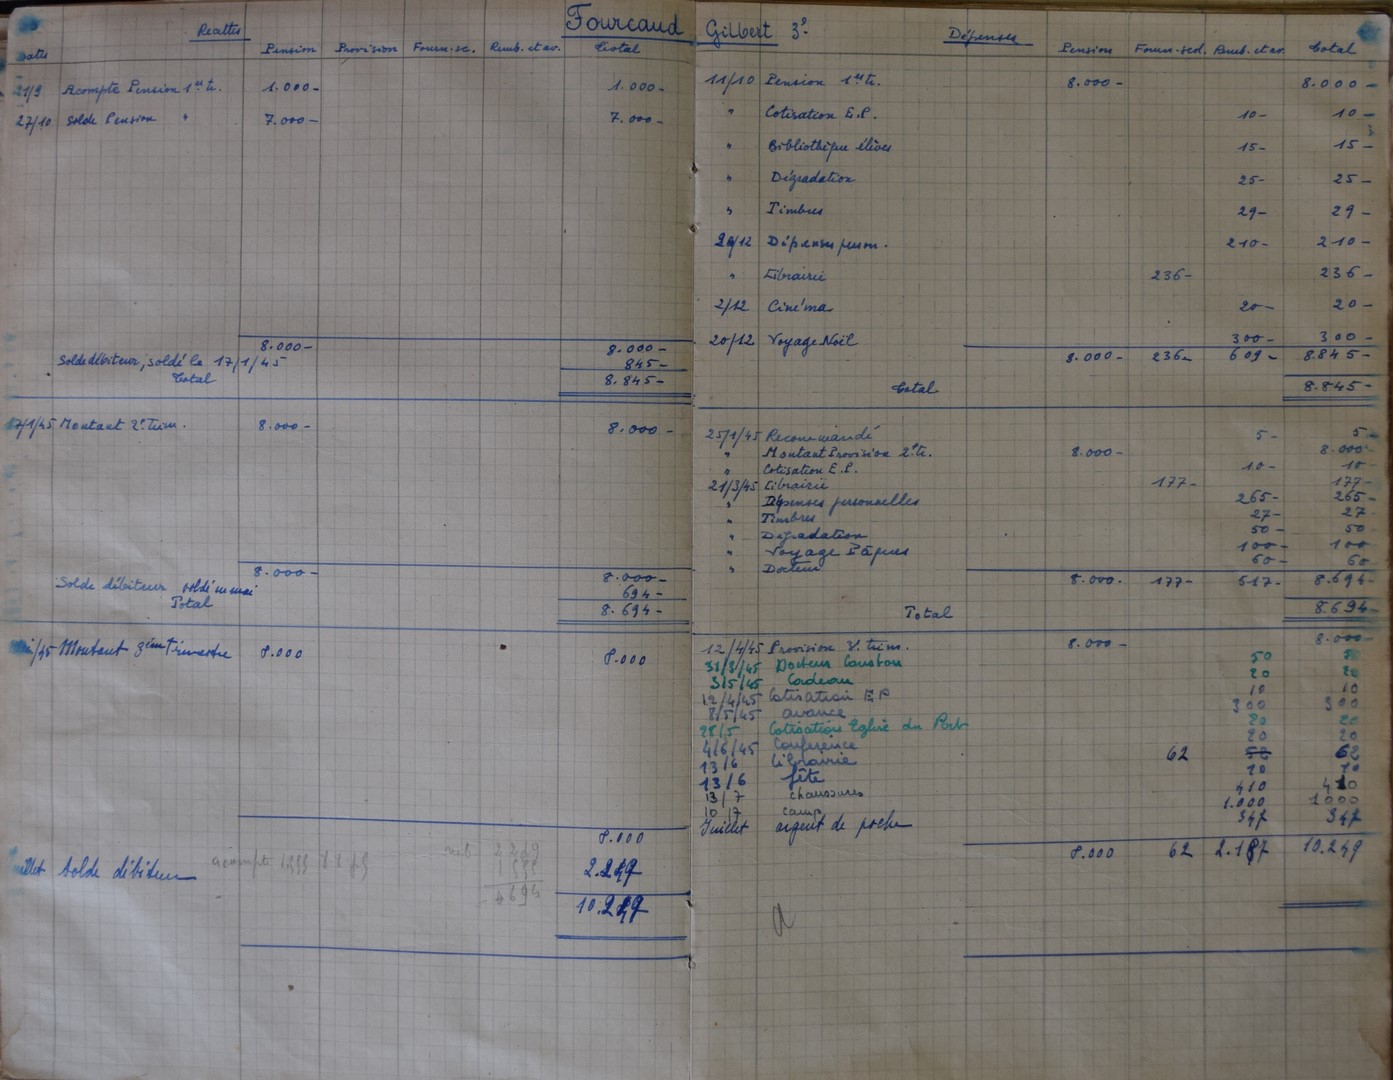 Fourcaud Gilbert 3e
Recettes
Dates Pension Provision Fourn-sc. Remb. et av. Total
21/9 Acompte Pension 1er tr. 1.000- 1.000-
27/10 Solde Pension " 7.000- 7.000-
8.000- 8.000-
Solde débiteur, soldé le 17/1/45 845-
Total 8.845-
17/1/45 Montant 2e trim. 8.000- 8.000-
8.000- 8.000-
Solde débiteur soldé en mai 694-
Total 8.694-
/45 Montant 3ème Trimestre 8.000 8.000
8.000
Solde débiteur 2.249
acompte
2249
4694
10.249
Dépenses
Pension Fourn-scol. Remb. et av. Total
11/10 Pension 1er tr. 8.000- 8.000-
" Cotisation E.P. 10- 10-
" Bibliothèque élèves 15- 15-
" Dégradation 25- 25-
" Timbres 29- 29-
20/12 Dépenses person. 210- 210-
" Librairie 236- 236-
2/12 Cinéma 20- 20-
20/12 Voyage Noël 300- 300-
8.000- 236- 609- 8.845-
Total 8.845-
25/1/45 Recommandé 5- 5-
" Montant Provision 2e tr. 8.000- 8.000-
" Cotisation E.P. 10- 10-
21/3/45 Librairie 177- 177-
" Dépenses personnelles 265- 265-
" Timbres 27- 27-
" Dégradation 50- 50-
" Voyage Pâques 100- 100-
" Docteur 60- 60-
8.000- 177- 517- 8.694-
Total 8.694-
12/4/45 Provision 3e trim. 8.000- 8.000-
31/3/45 Docteur 50 50
3/5/45 Cadeau 20 20
12/4/45 Cotisation EP 10 10
8/5/45 avance 300 300
28/5 Cotisation Eglise du Port 20 20
4/6/45 Conférence 20 20
13/6 Librairie 62 62
13/6 fête 10 10
13/7 chaussures 410 410
10/7 camp 1.000 1000
Juillet argent de poche 347 347
8.000 62 2.187 10.249